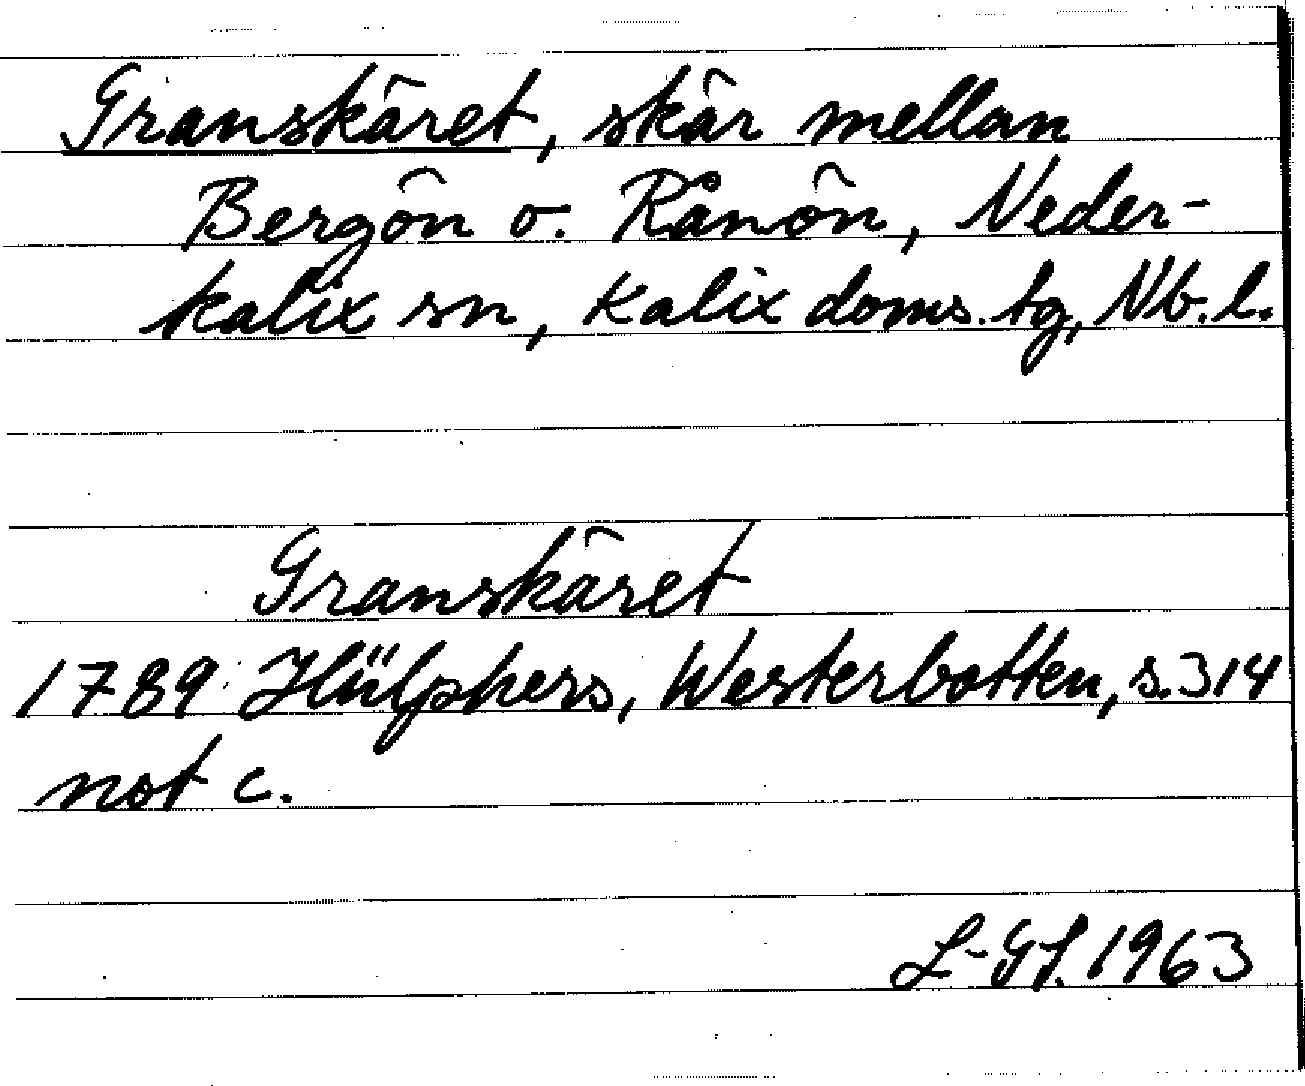 Granskäret, skär mellan
Bergön o. Rånön, Neder-
kalix sn, Kalix doms. tg, Nb. l.
Granskäret
1789 Hülphers, Westerbotten, s. 314
not c.
L-GL. 1963